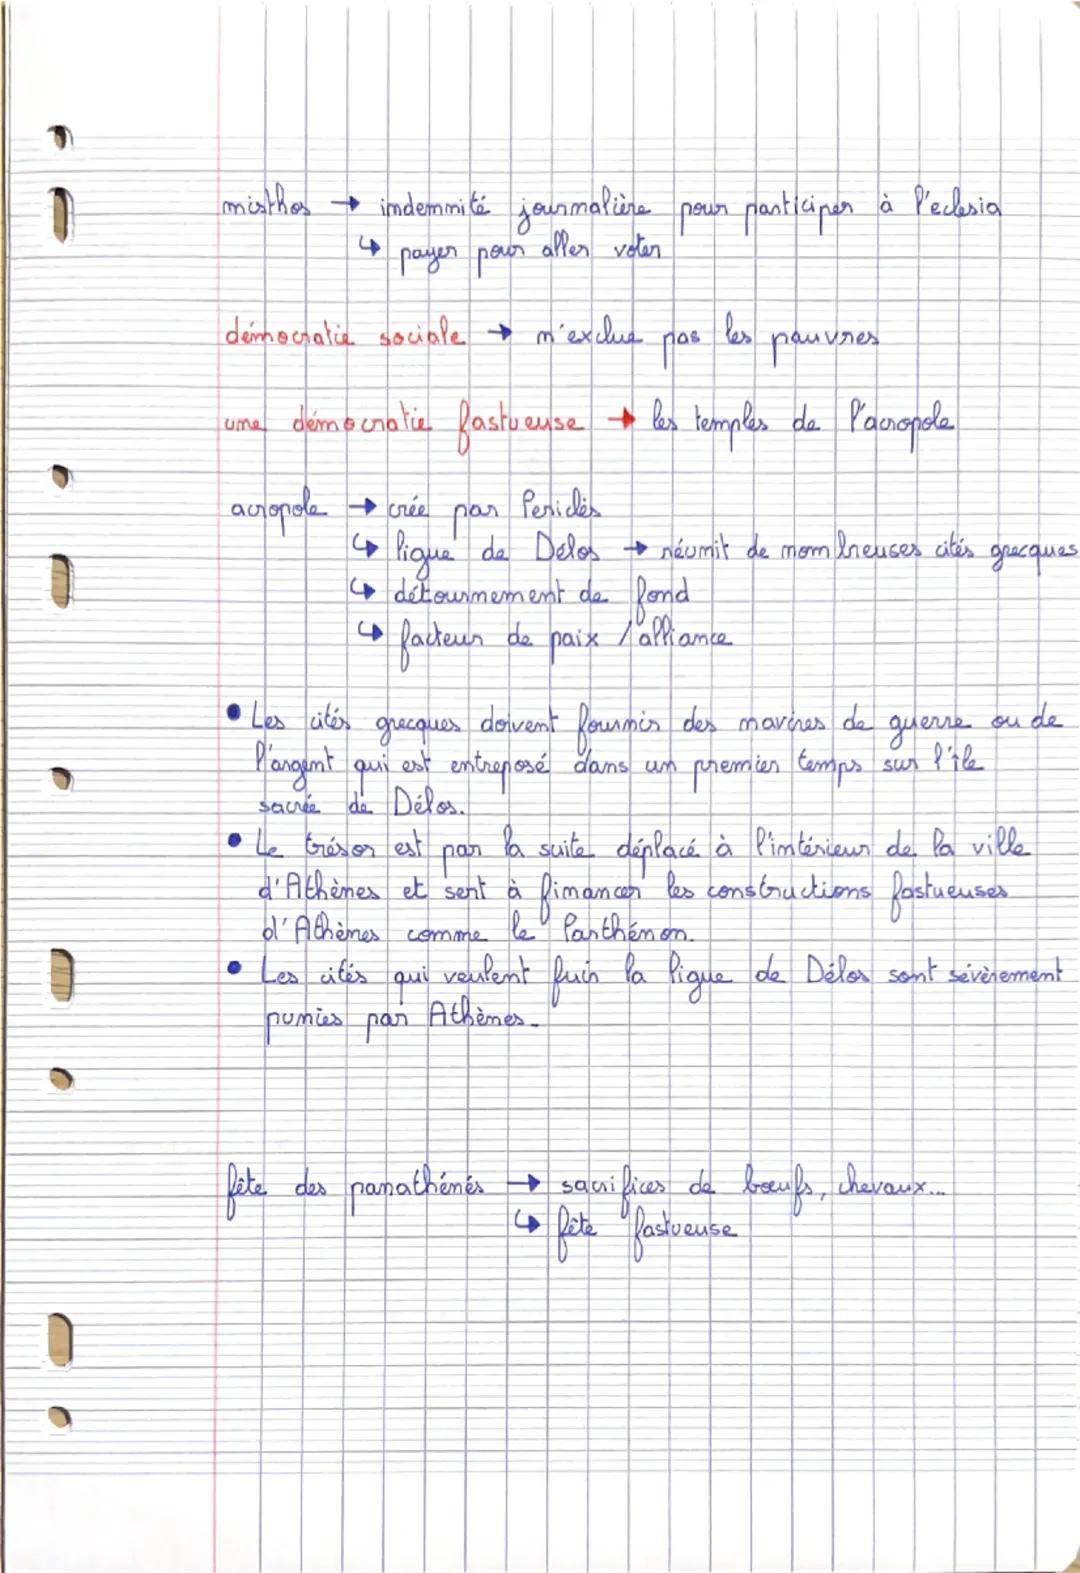 misthos → indemnité journalière pour participer à l'eclesia
↳ payer pour aller voter
démocratie sociale → n'exclue pas les pauvres
une démocratie fastueuse → les temples de l'acropole
acropole → crée par Periclès
↳ ligue de Délos → réunit de nombreuses cités grecques
↳ détournement de fond
↳ facteur de paix / alliance
• Les cités grecques doivent fournir des navires de guerre ou de
l'argent qui est entreposé dans un premier temps sur l'île
sacrée de Délos.
• Le trésor est par la suite déplacé à l'intérieur de la ville
d'Athènes et sert à financer les constructions fastueuses
d'Athènes comme le Parthénon.
• Les cités qui veulent fuir la ligue de Délos sont sévèrement
punies par Athènes.
fête des panathénés → sacrifices de bœufs, chevaux...
↳ fête fastueuse